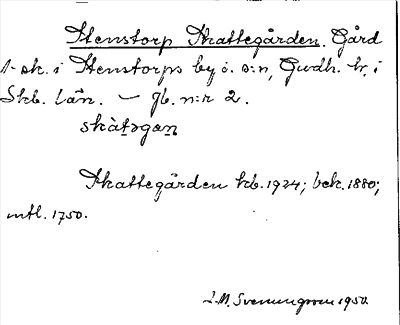 Stenstorp Skattegården. Gård
1 sk. i Stenstorps by o. s:n, Gudh. hr, i
Skb. län. — gb. n:r 2.
skàtəgaṇ
Skattegården kb. 1924; bek. 1880;
mtl. 1750.
S. M. Svenungsson 1950.